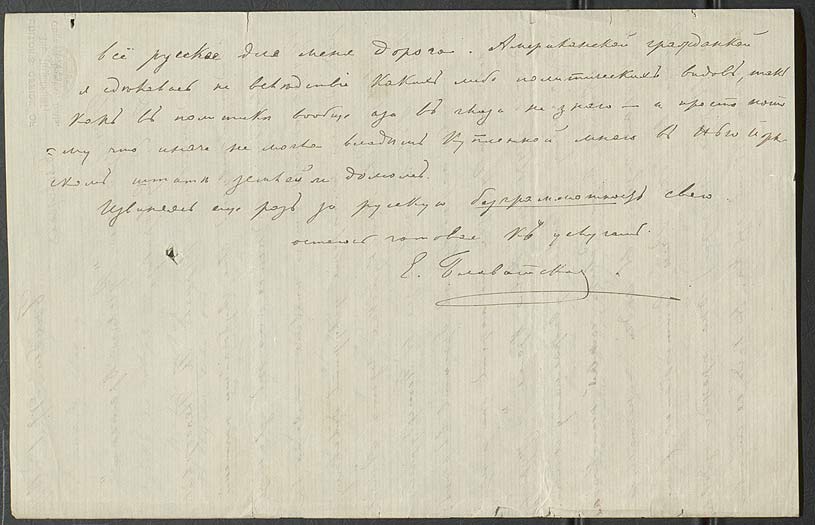 всё русское для меня дорого. Американской гражданкой
я сделалась не вследствіе какихъ либо политическихъ видовъ, такъ
какъ въ политикѣ вообще аза въ глаза не знаю — а просто пото
=му что иначе не могла владѣть купленной мною въ Нью Iорк-
скомъ штатѣ землей и домомъ.
Извиняясь еще разъ за русскую безграмотность свою
остаюсь готовая къ услугамъ.
Е. Блаватская